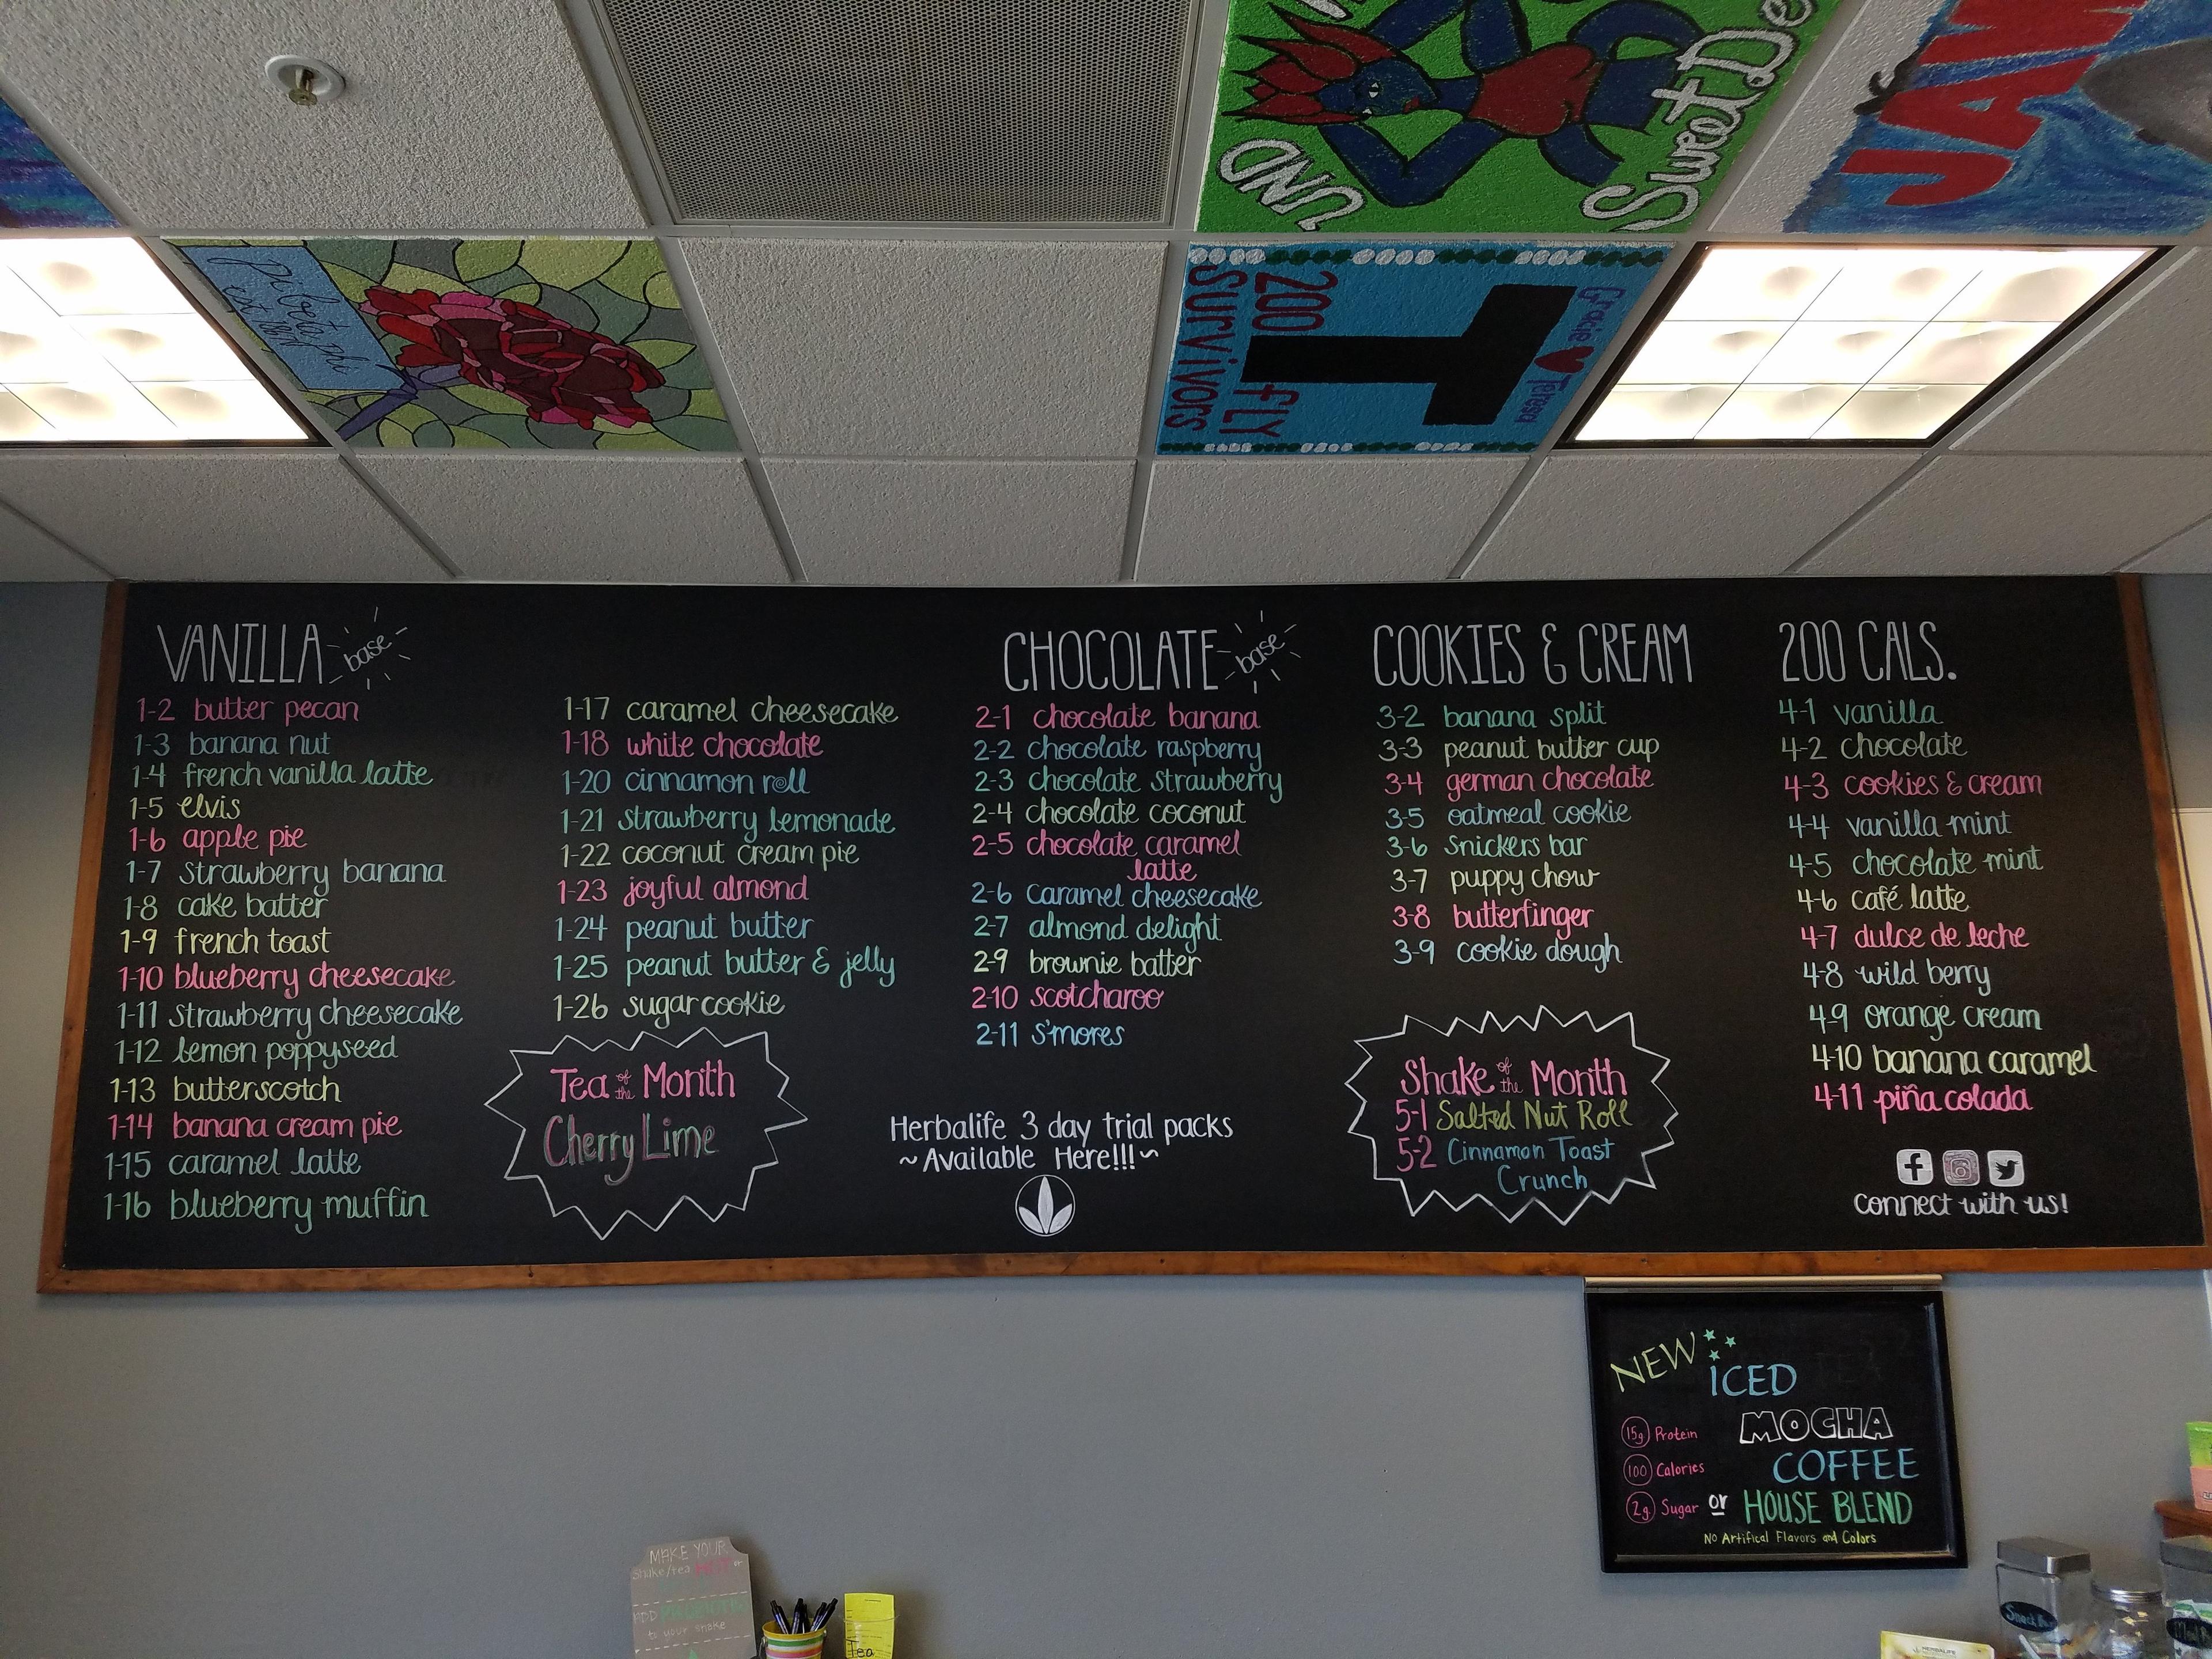 UND
Sweet De
JAW
pi beta phi
Gracie ♥ Teresa
T
200 FLY
SURVIVORS
VANILLA base
1-2 butter pecan
1-3 banana nut
1-4 french vanilla latte
1-5 elvis
1-6 apple pie
1-7 strawberry banana
1-8 cake batter
1-9 french toast
1-10 blueberry cheesecake
1-11 strawberry cheesecake
1-12 lemon poppyseed
1-13 butterscotch
1-14 banana cream pie
1-15 caramel latte
1-16 blueberry muffin
1-17 caramel cheesecake
1-18 white chocolate
1-20 cinnamon roll
1-21 strawberry lemonade
1-22 coconut cream pie
1-23 joyful almond
1-24 peanut butter
1-25 peanut butter & jelly
1-26 sugar cookie
Tea of the Month
Cherry Lime
CHOCOLATE base
2-1 chocolate banana
2-2 chocolate raspberry
2-3 chocolate strawberry
2-4 chocolate coconut
2-5 chocolate caramel
latte
2-6 caramel cheesecake
2-7 almond delight
2-9 brownie batter
2-10 scotcharoo
2-11 s'mores
Herbalife 3 day trial packs
~Available Here!!!~
COOKIES & CREAM
3-2 banana split
3-3 peanut butter cup
3-4 german chocolate
3-5 oatmeal cookie
3-6 snickers bar
3-7 puppy chow
3-8 butterfinger
3-9 cookie dough
Shake of the Month
5-1 Salted Nut Roll
5-2 Cinnamon Toast
Crunch
200 CALS.
4-1 vanilla
4-2 chocolate
4-3 cookies & cream
4-4 vanilla mint
4-5 chocolate mint
4-6 café latte
4-7 dulce de leche
4-8 wild berry
4-9 orange cream
4-10 banana caramel
4-11 piña colada
connect with us!
NEW
ICED
MOCHA
COFFEE
15g Protein
100 Calories
2g Sugar
or HOUSE BLEND
No Artifical Flavors and Colors
MAKE YOUR
Shake/tea
ADD
to your shake
Tea